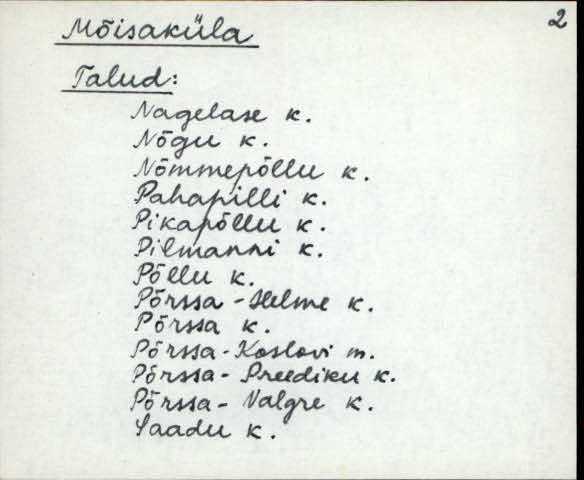 2
Mõisaküla
Talud:
Nagelase k.
Nõgu k.
Nõmmepõllu k.
Pahapilli k.
Pikapõllu k.
Pilmanni k.
Põllu k.
Põrssa-Helme k.
Põrssa k.
Põrssa-Koslovi m.
Põrssa-Preediku k.
Põrssa-Valgre k.
Saadu k.